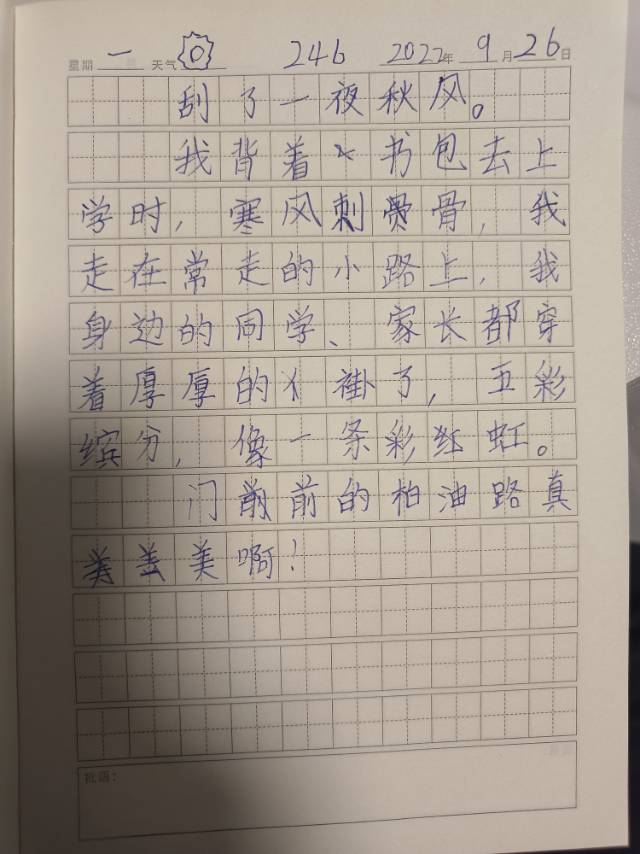 星期 一 天气 246 2022年 9月26日
刮了一夜秋风。
我背着书包去上
学时,寒风刺骨,我
走在常走的小路上,我
身边的同学、家长都穿
着厚厚的褂了,五彩
缤分,像一条彩红虹。
门前的柏油路真
美啊!
批语: